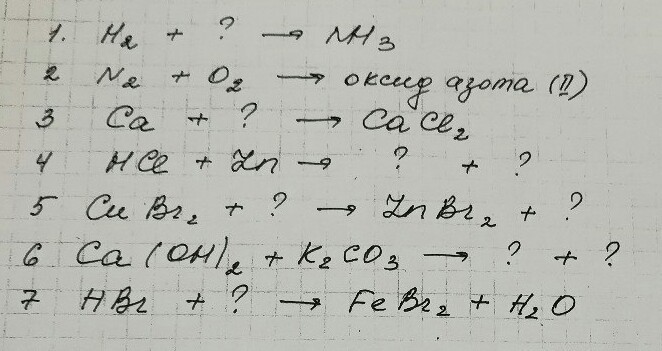 1. H₂ + ? → NH₃
2 N₂ + O₂ → оксид азота (II)
3 Ca + ? → CaCl₂
4 HCl + Zn → ? + ?
5 CuBr₂ + ? → ZnBr₂ + ?
6 Ca(OH)₂ + K₂CO₃ → ? + ?
7 HBr + ? → FeBr₂ + H₂O